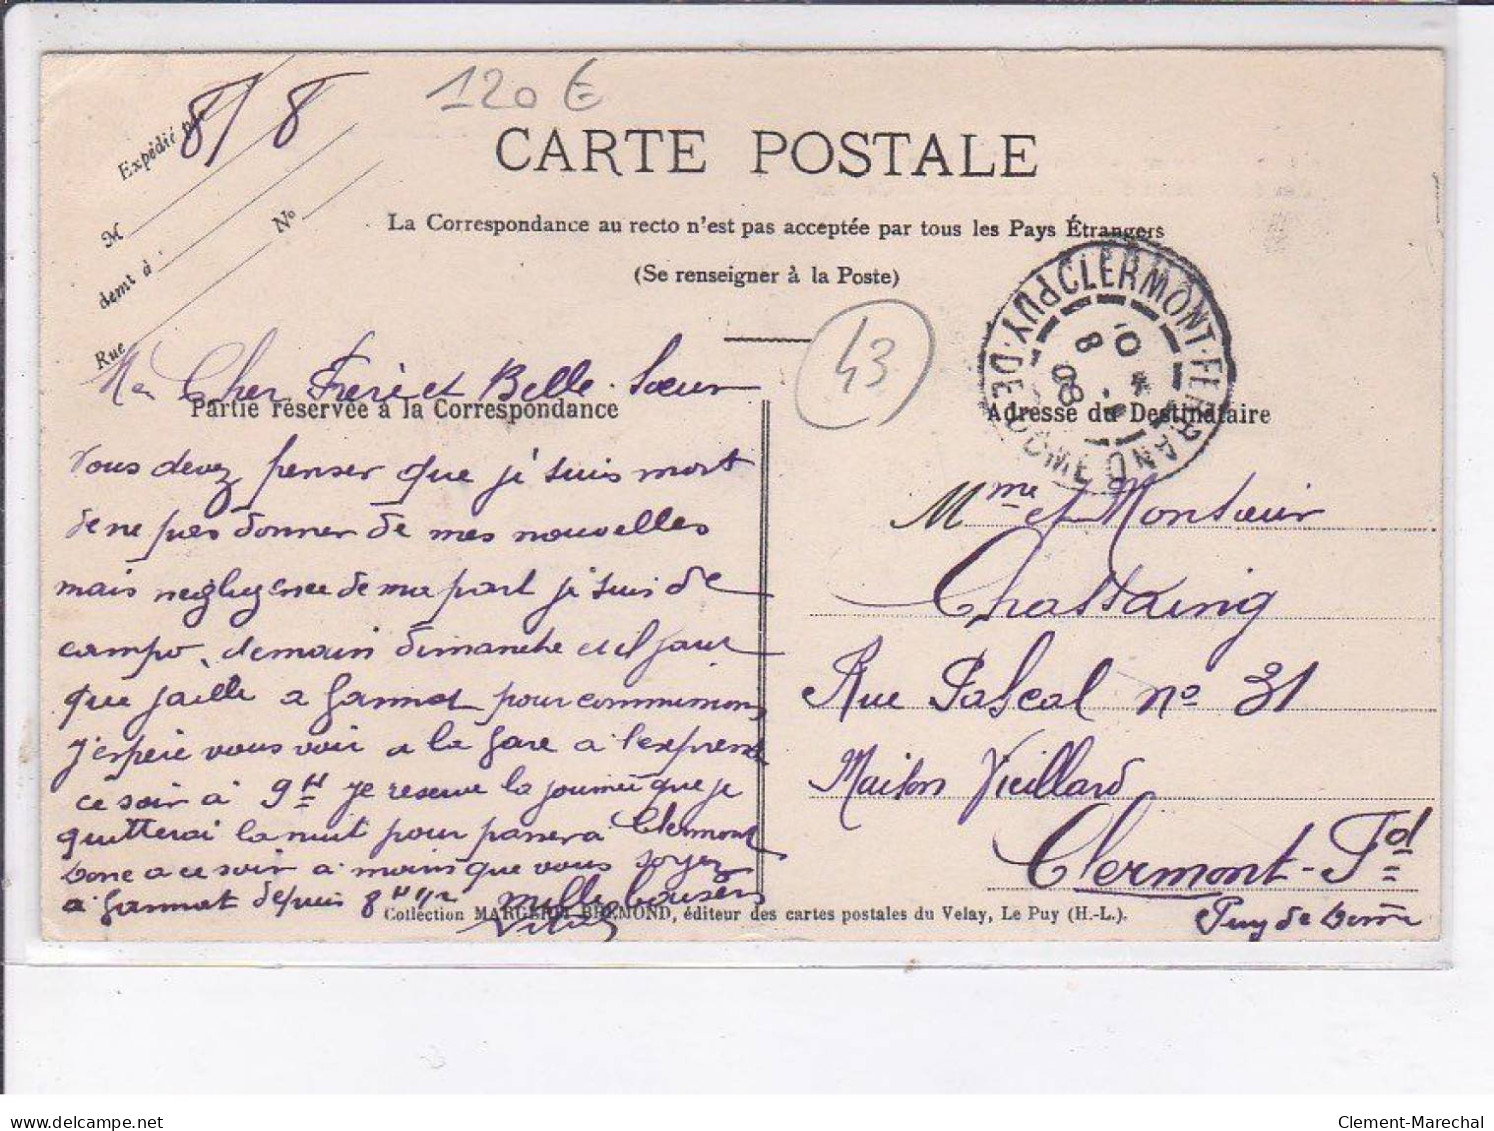 120 €
8/8
Expédié par
M
demt à
Rue
No
CARTE POSTALE
La Correspondance au recto n'est pas acceptée par tous les Pays Étrangers
(Se renseigner à la Poste)
43
CLERMONT-FERRAND PUY-DE-DOME
8
08
Partie réservée à la Correspondance
Adresse du Destinataire
Cher Frère et Belle-Sœur
Vous devez penser que je suis mort
de ne pas donner de mes nouvelles
mais de ma part je suis de
campo, demain dimanche et il faut
que jaille a Gannat pour communion
J'espère vous voir a la gare a l'express
ce soir à 9H je reserve la journée que je
quitterai la nuit pour passer a Clermont
Donc a ce soir a moin que vous soyez
a Gannat depuis 8H 1/2 mille baisers
Mme et Monsieur
Chastaing
Rue Pascal no 31
Maison Vieillard
Clermont-Fd
Puy de Dome
Collection MARGERIT-BREMOND, éditeur des cartes postales du Velay, Le Puy (H.-L.).
delcampe.net
Clement-Marechal